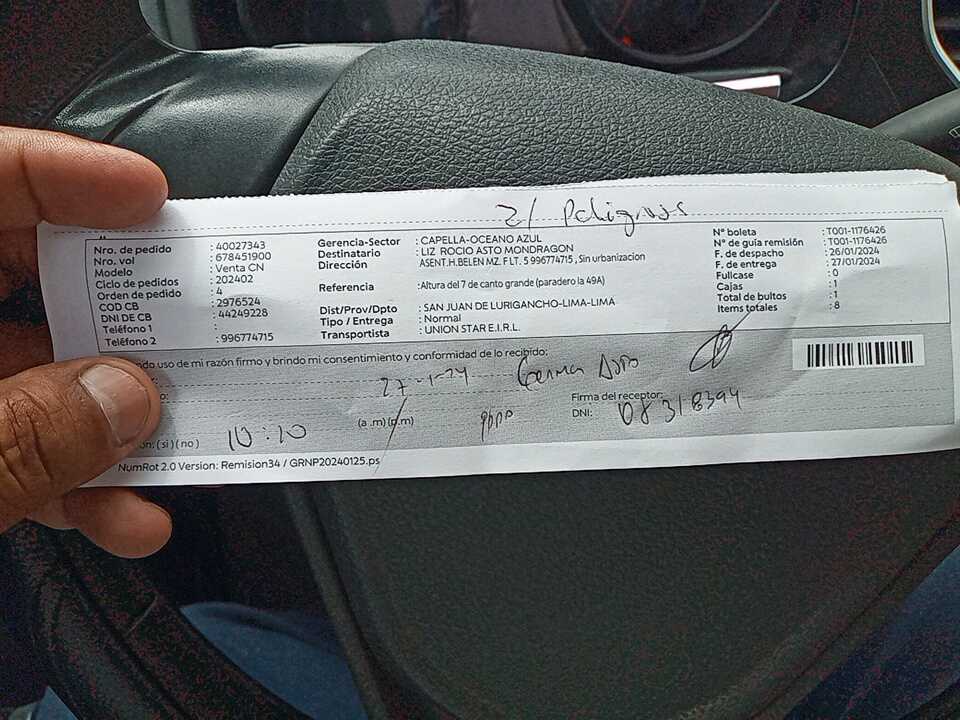 Z/ Peligrosa
Nro. de pedido : 40027343
Nro. vol : 678451900
Modelo : Venta CN
Ciclo de pedidos : 202402
Orden de pedido : 4
COD CB : 2976524
DNI DE CB : 44249228
Teléfono 1 :
Teléfono 2 : 996774715
Gerencia-Sector : CAPELLA-OCEANO AZUL
Destinatario : LIZ ROCIO ASTO MONDRAGON
Dirección ASENT.H.BELEN MZ. F LT. 5 996774715 , Sin urbanizacion
Referencia :Altura del 7 de canto grande (paradero la 49A)
Dist/Prov/Dpto : SAN JUAN DE LURIGANCHO-LIMA-LIMA
Tipo / Entrega : Normal
Transportista : UNION STAR E.I.R.L.
N° boleta : T001-1176426
N° de guía remisión : T001-1176426
F. de despacho : 26/01/2024
F. de entrega : 27/01/2024
Fullcase : 0
Cajas : 1
Total de bultos : 1
Items totales : 8
uso de mi razón firmo y brindo mi consentimiento y conformidad de lo recibido:
27-1-24 German Asto
Firma del receptor:
(a .m) (p.m) DNI: 08318394
( si ) ( no ) 10:10
NumRot 2.0 Version: Remision34 / GRNP20240125.ps